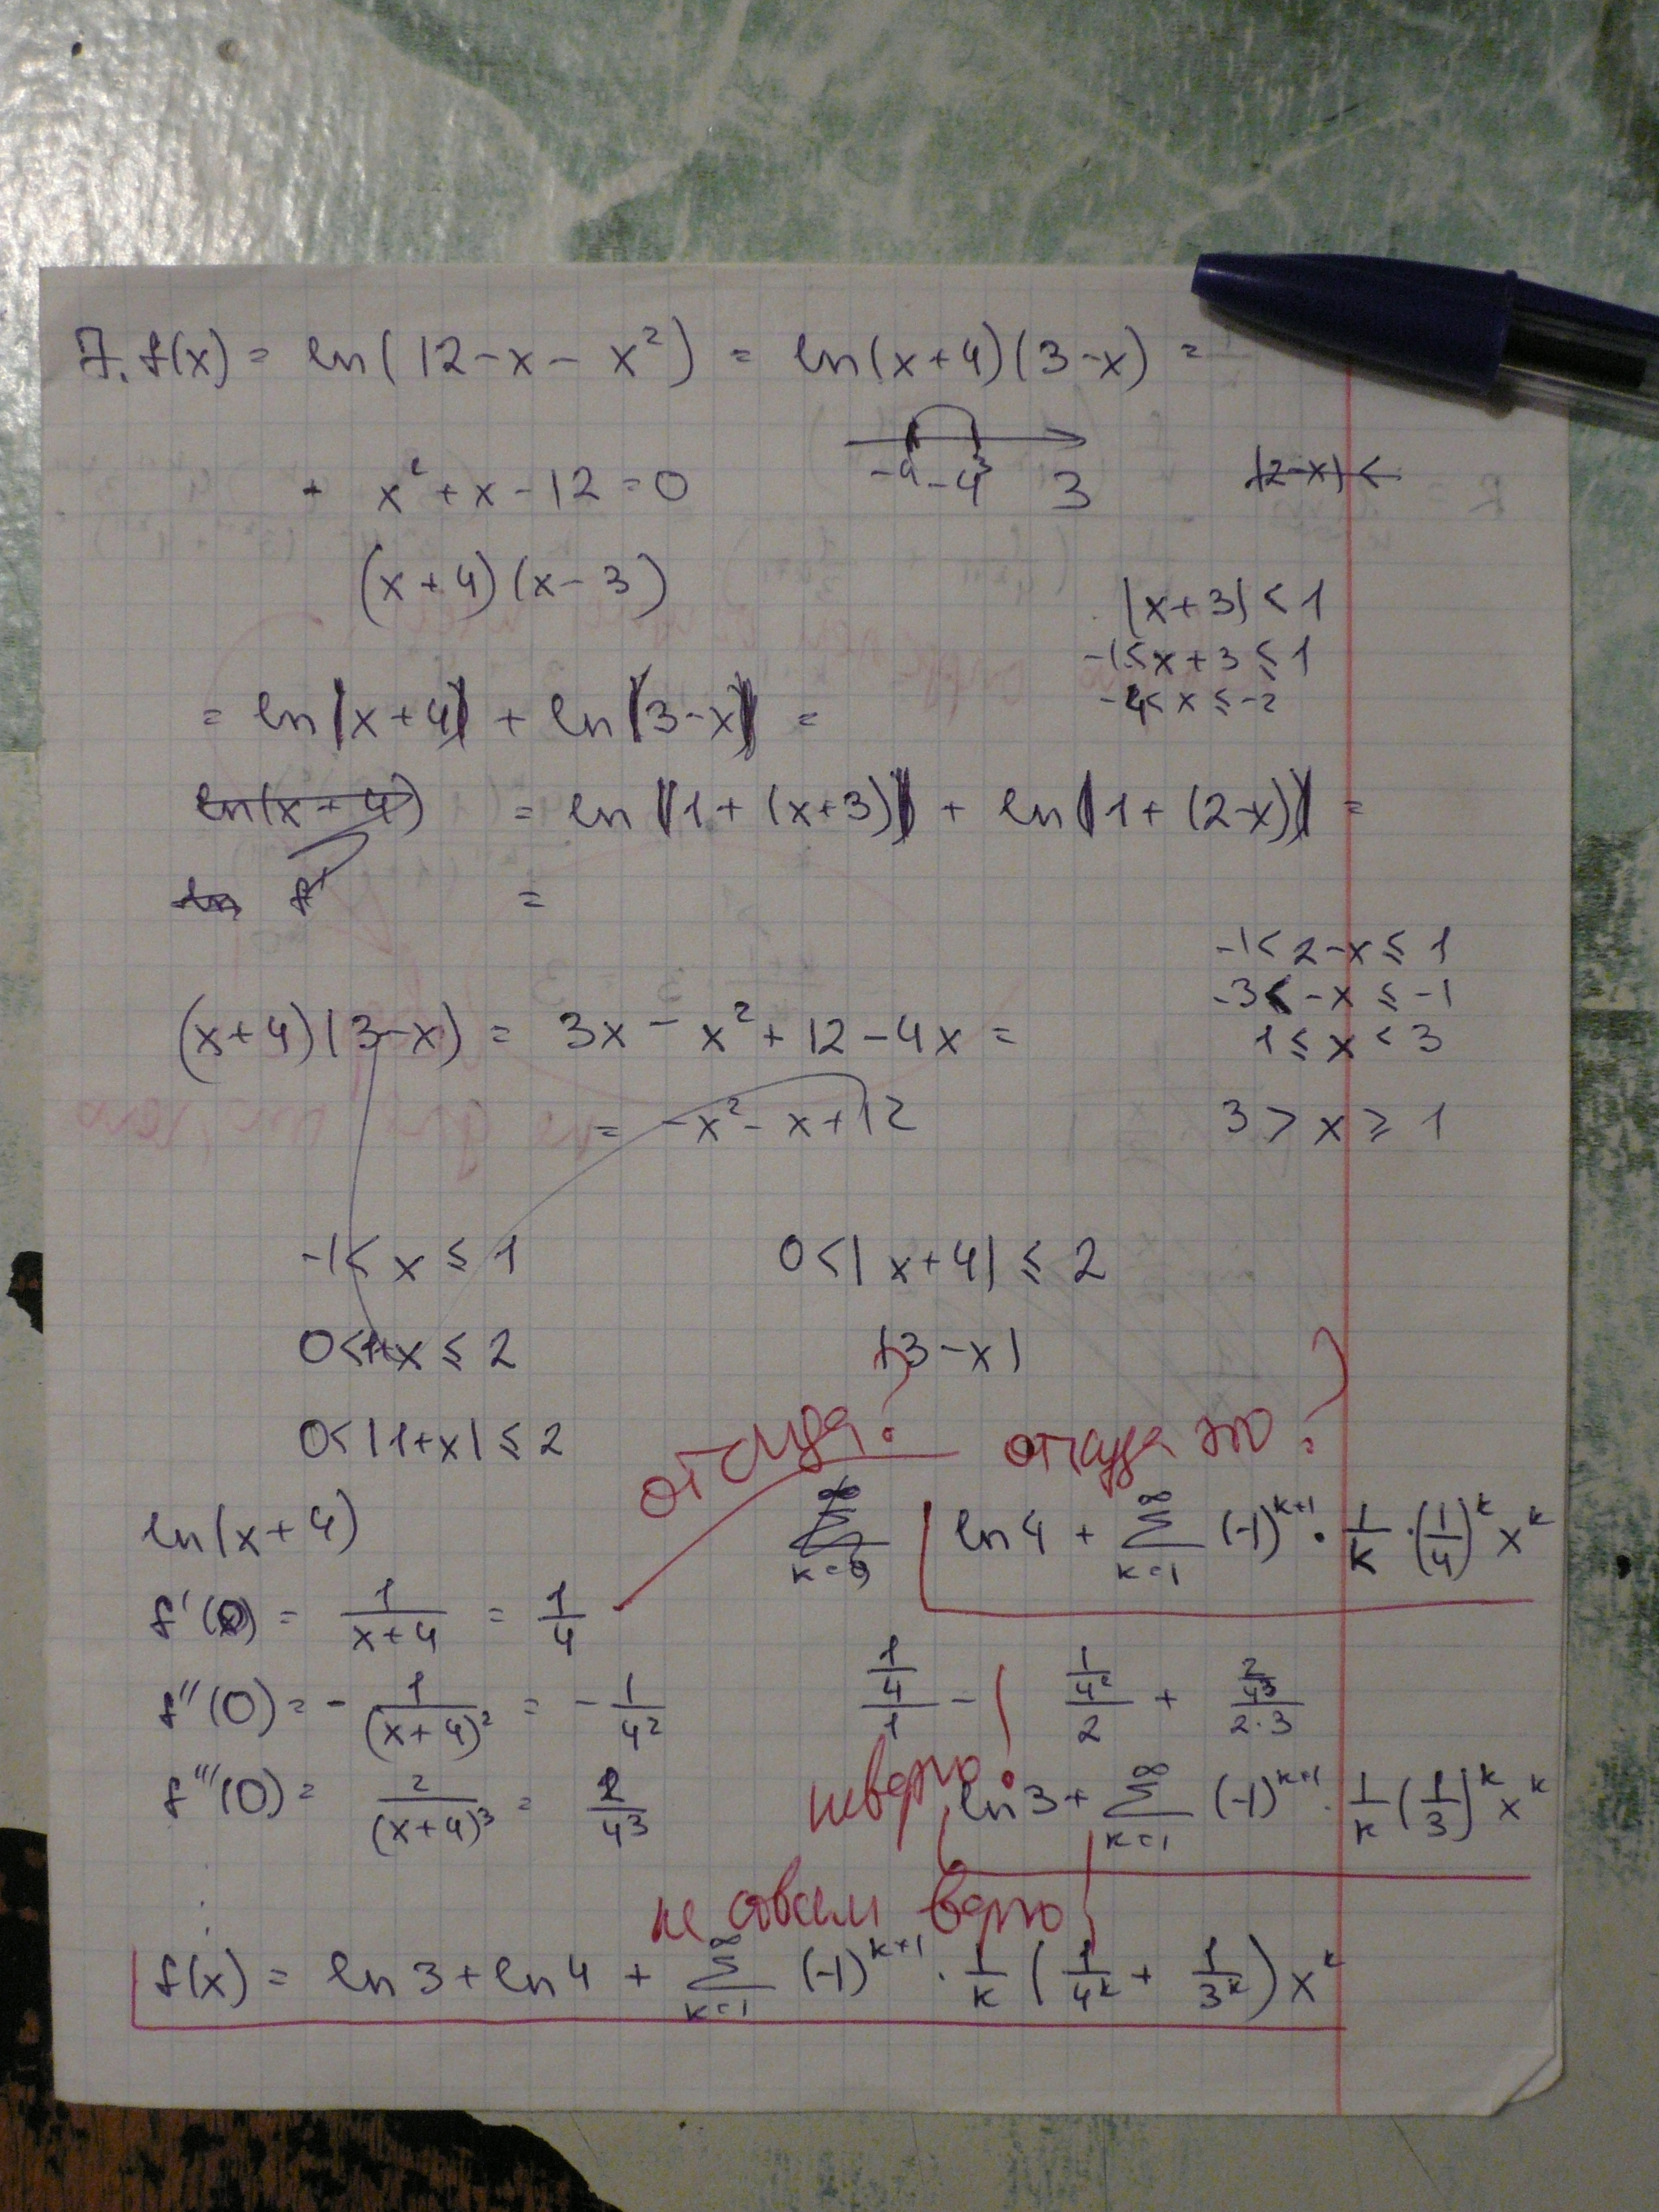 7. f(x) = ln(12 - x - x²) = ln(x+4)(3-x) =
-4 3
x² + x - 12 = 0
(x+4)(x-3)
|x+3| < 1
-1 < x+3 ≤ 1
-4 < x ≤ -2
= ln(x+4) + ln(3-x) =
= ln(1+(x+3)) + ln(1+(2-x)) =
=
-1 < 2-x ≤ 1
-3 < -x ≤ -1
1 ≤ x < 3
(x+4)(3-x) = 3x - x² + 12 - 4x =
= -x² - x + 12
3 > x ≥ 1
-1 < x ≤ 1
0 < |x+4| ≤ 2
0 < 1+x ≤ 2
|3-x|
0 < |1+x| ≤ 2
откуда?
откуда это?
ln(x+4)
ln 4 + ∑_{k=1}^{∞} (-1)^{k+1} · 1/k · (1/4)^k x^k
f'(0) = 1/(x+4) = 1/4
f''(0) = - 1/(x+4)² = - 1/4²
(1/4)/1 - (1/4²)/2 + (2/4³)/(2·3)
f'''(0) = 2/(x+4)³ = 2/4³
неверно!
ln 3 + ∑_{k=1}^{∞} (-1)^{k+1} · 1/k (1/3)^k x^k
не совсем верно
f(x) = ln 3 + ln 4 + ∑_{k=1}^{∞} (-1)^{k+1} · 1/k (1/4^k + 1/3^k) x^k